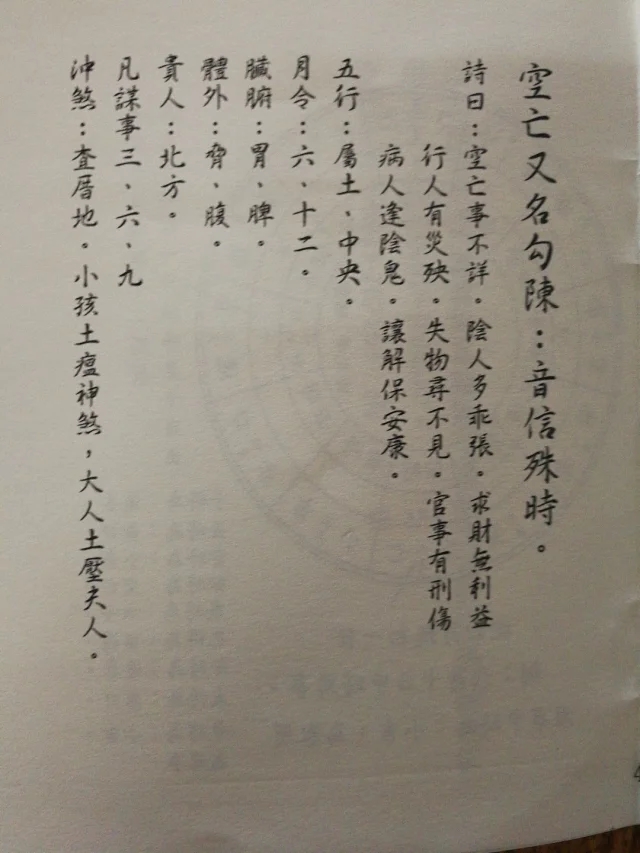 空亡又名勾陳：音信殊時。
詩曰：空亡事不詳。陰人多乖張。求財無利益
行人有災殃。失物尋不見。官事有刑傷
病人逢陰鬼。讓解保安康。
五行：屬土、中央。
月令：六、十二。
臟腑：胃、脾。
體外：脅、腹。
貴人：北方。
凡謀事三、六、九
沖煞：查厝地。小孩土瘟神煞，大人土壓夫人。